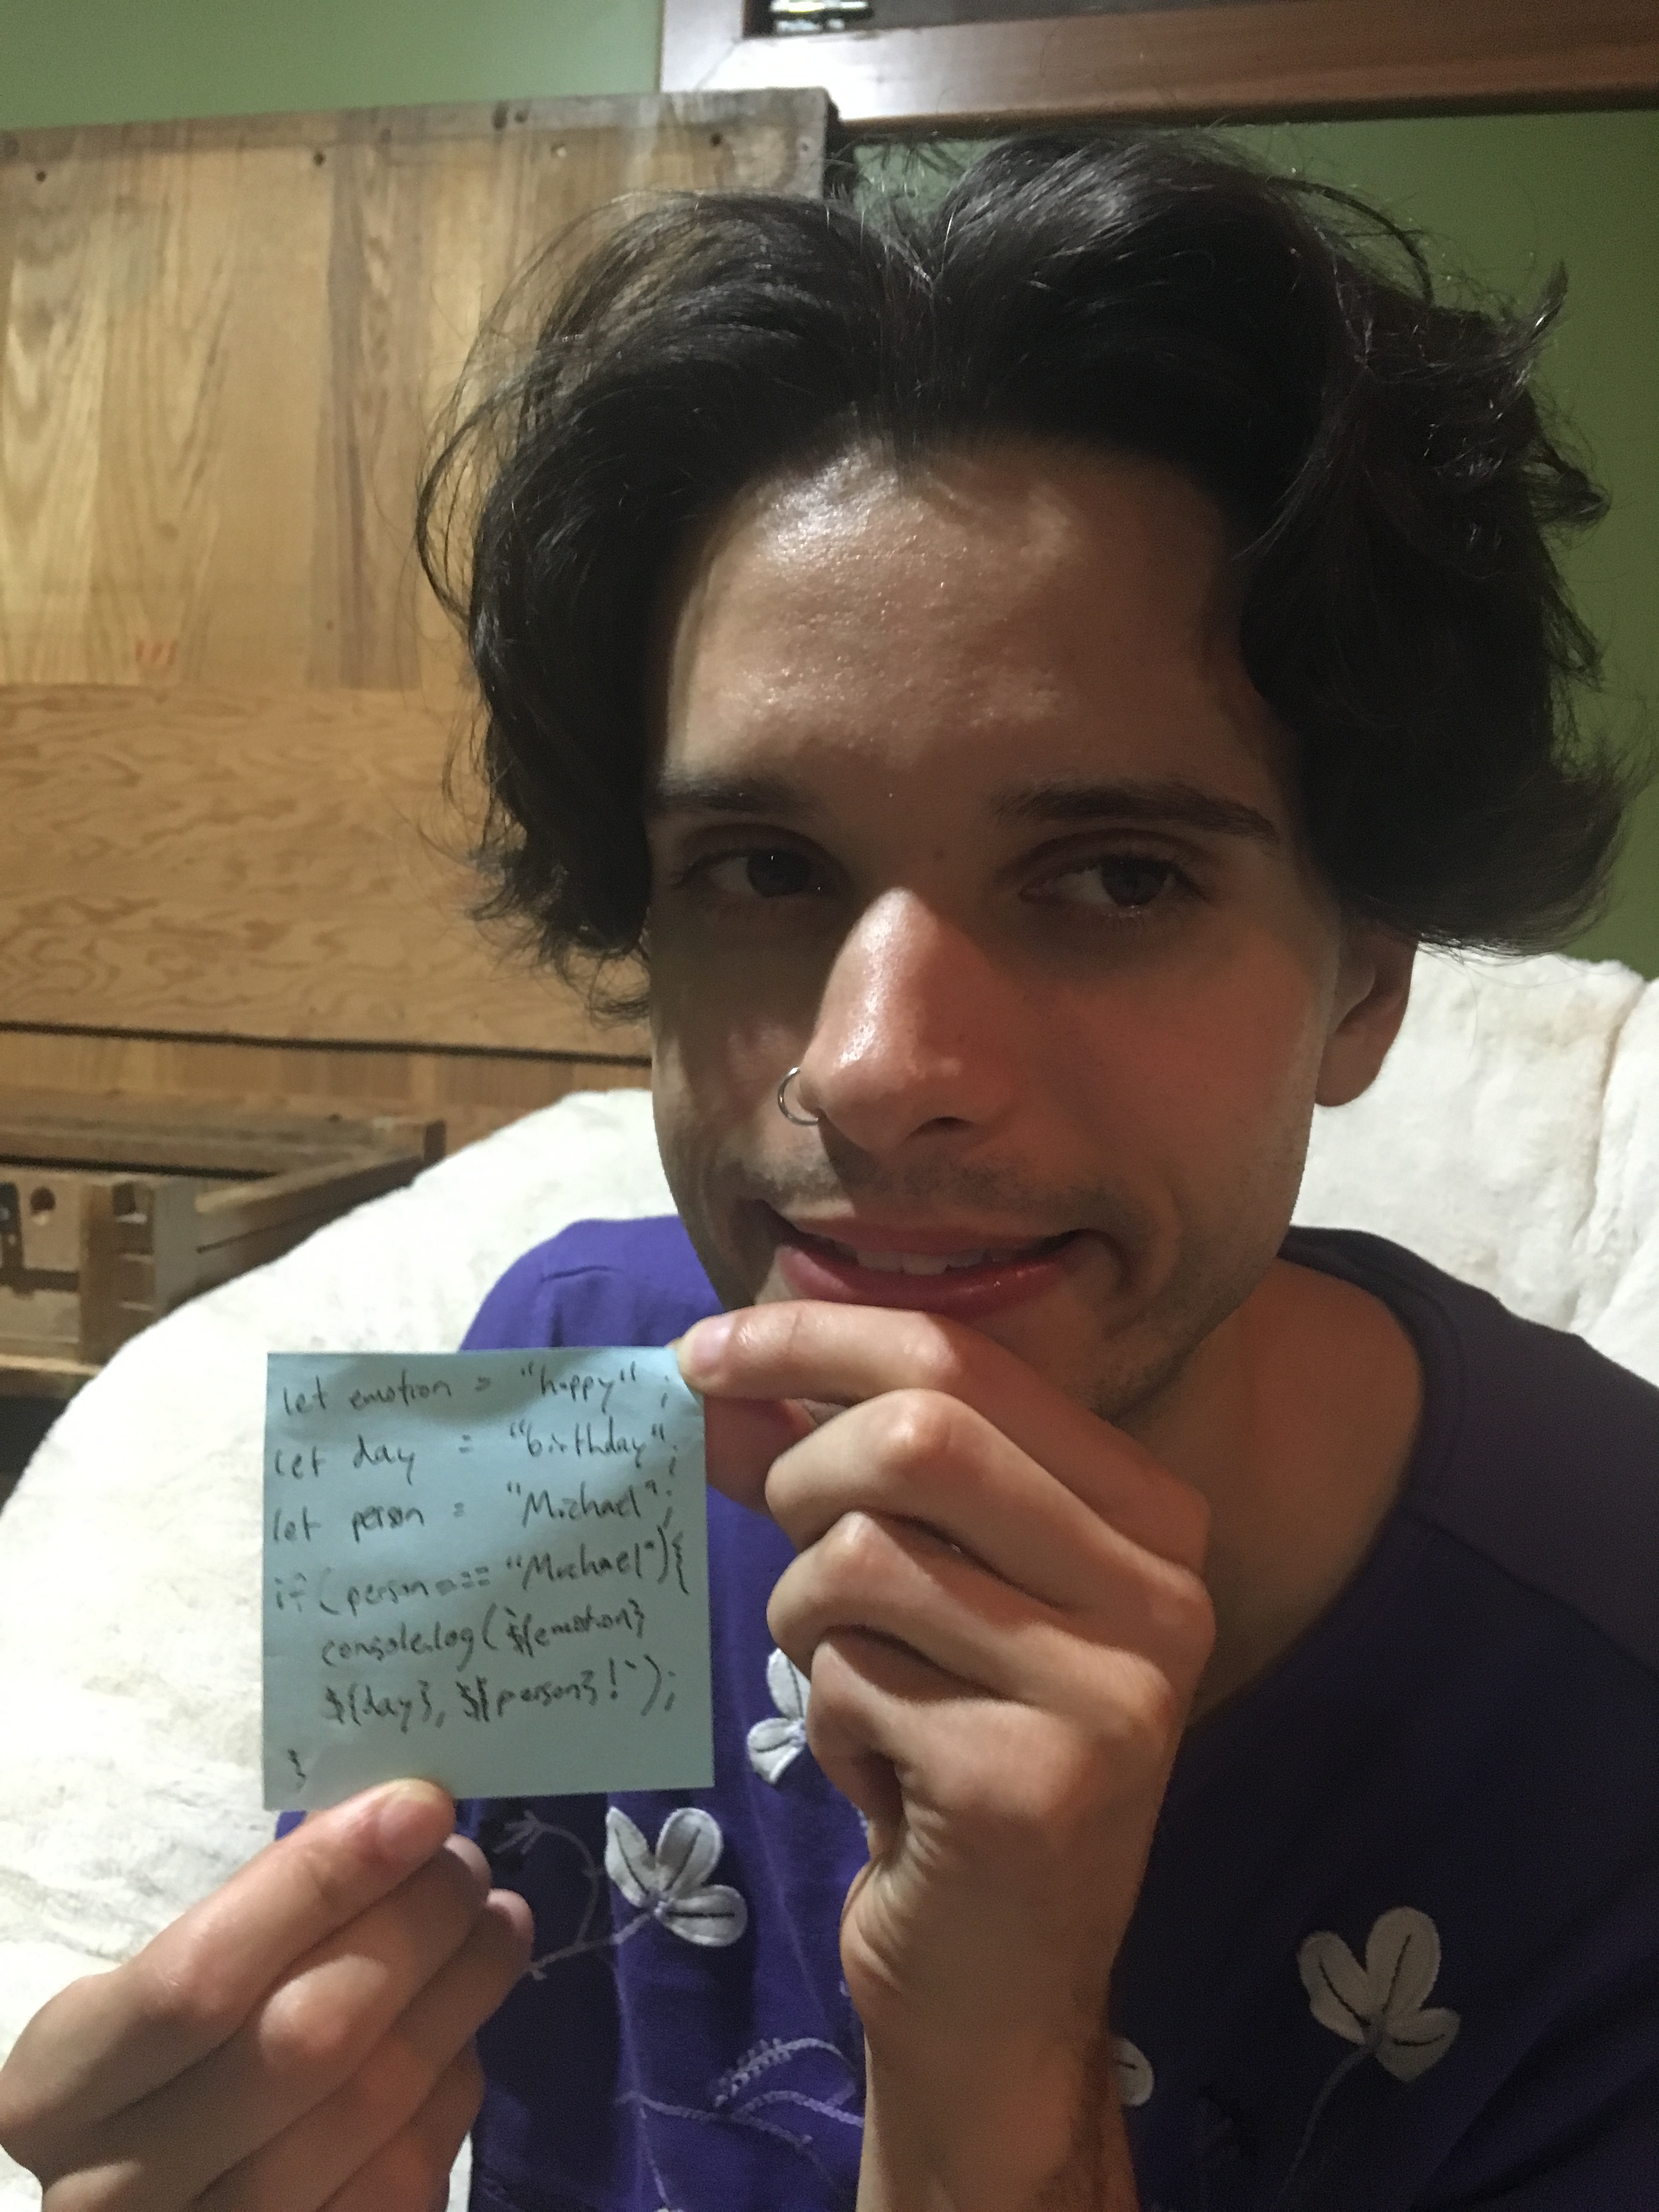 let emotion = "happy";
let day = "birthday";
let person = "Michael";
if (person === "Michael"){
console.log(`${emotion}
${day}, ${person}!`);
}